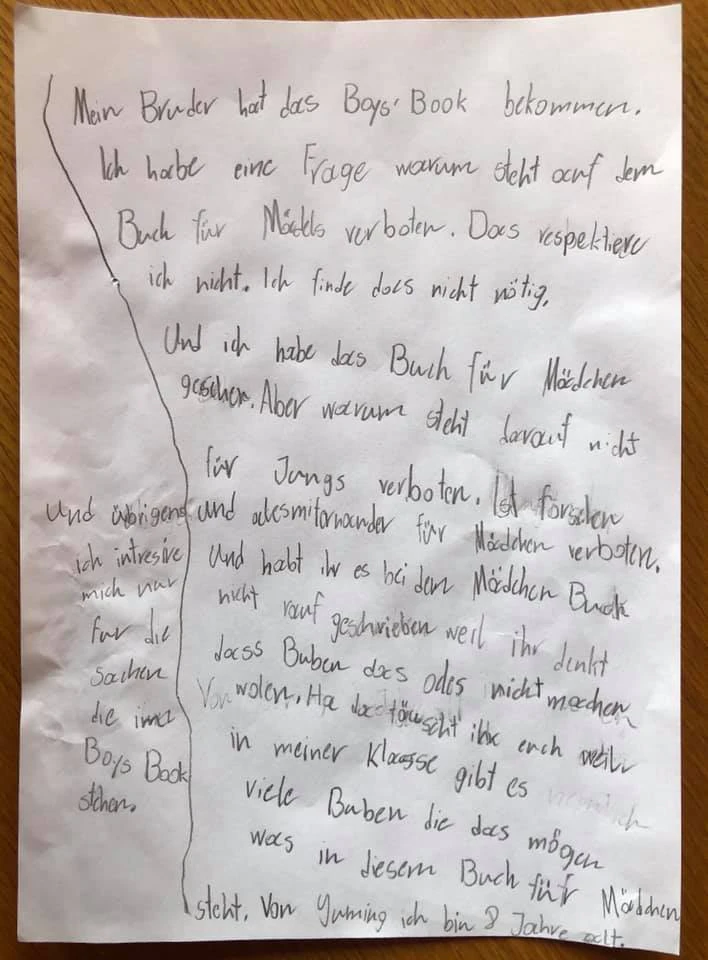 Mein Bruder hat das Boys' Book bekommen.
Ich habe eine Frage warum steht auf dem
Buch für Mädels verboten. Das respektiere
ich nicht. Ich finde das nicht nötig.
Und ich habe das Buch für Mädchen
gesehen. Aber warum steht darauf nicht
für Jungs verboten. Ist forschen
und alles für Mädchen verboten.
Und habt ihr es bei dem Mädchen Buch
nicht rauf geschrieben weil ihr denkt
dass Buben das odes nicht machen
wolen. Ha da täuscht ihr euch weil
in meiner Klasse gibt es
viele Buben die das mögen
was in diesem Buch für Mädchen
steht. Von Yuming ich bin 8 Jahre alt.
Und übrigens
ich intresire
mich nur
für die
sachen
die im
Boys Book
stehen.